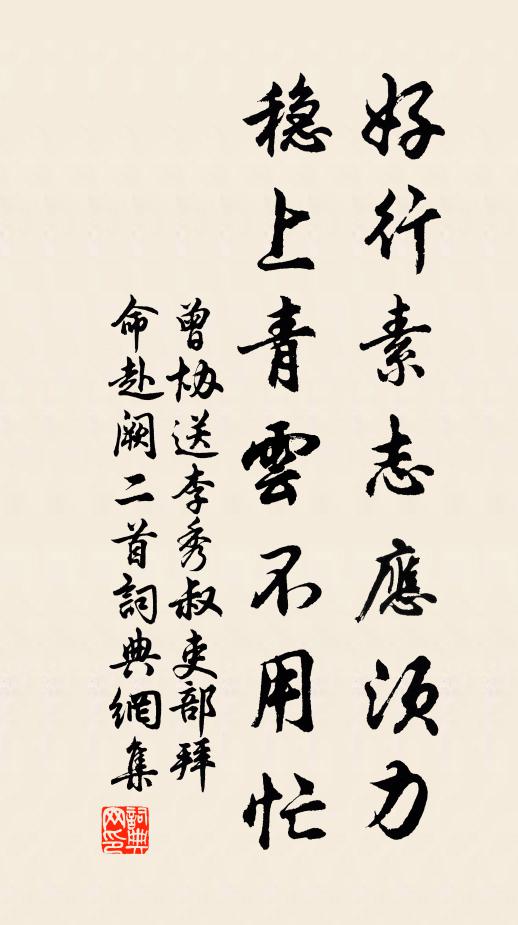 好行素志應須力
穩上青雲不用忙
曾協送李秀叔吏部拜
命赴闕二首詞典網集
詞典
网印